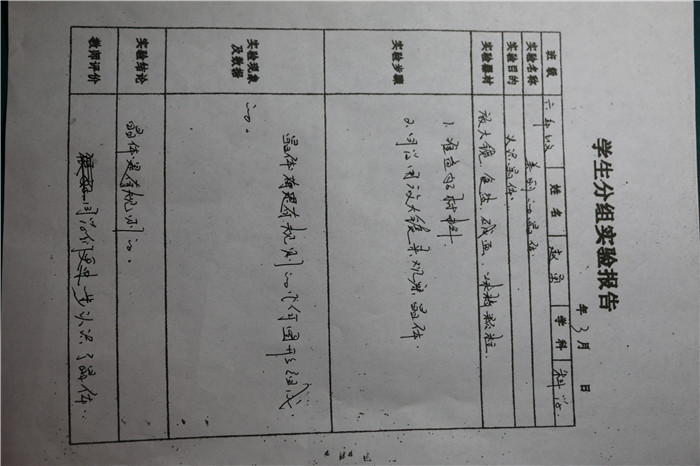 学生分组实验报告
年 3 月 日
班级 六年级 姓名 学科 科学
实验名称 美丽的晶体
实验目的 认识晶体
实验器材 放大镜、食盐、碱面、味精
实验步骤 1. 准备好材料
2. 同学用放大镜来观察晶体.
实验现象及数据 晶体都是有规则的几何图形组成
的。
实验结论 晶体是有规则的。
教师评价 同学们更进一步认识了晶体.